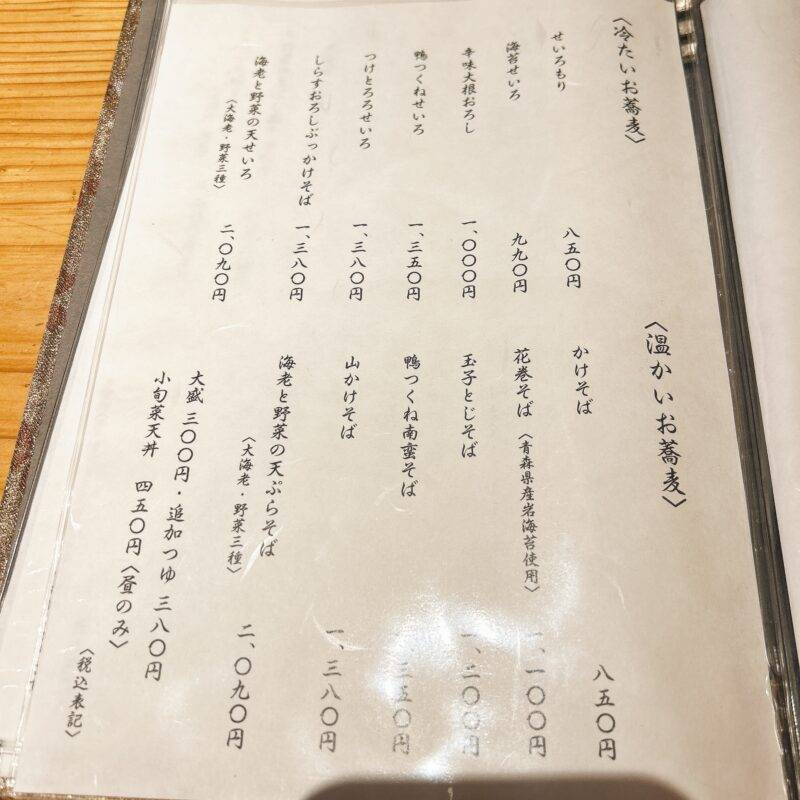 〈冷たいお蕎麦〉
せいろもり 八五〇円
海苔せいろ 九九〇円
辛味大根おろし 一、〇〇〇円
鴨つくねせいろ 一、三五〇円
つけとろろせいろ 一、三八〇円
しらすおろしぶっかけそば 一、三八〇円
海老と野菜の天せいろ 二、〇九〇円
〈大海老・野菜三種〉
〈温かいお蕎麦〉
かけそば 八五〇円
花巻そば〈青森県産岩海苔使用〉 一、一〇〇円
玉子とじそば 一、二〇〇円
鴨つくね南蛮そば 一、三五〇円
山かけそば 一、三八〇円
海老と野菜の天ぷらそば 二、〇九〇円
〈大海老・野菜三種〉
大盛 三〇〇円・追加つゆ 三八〇円
小旬菜天丼 四五〇円〈昼のみ〉
〈税込表記〉